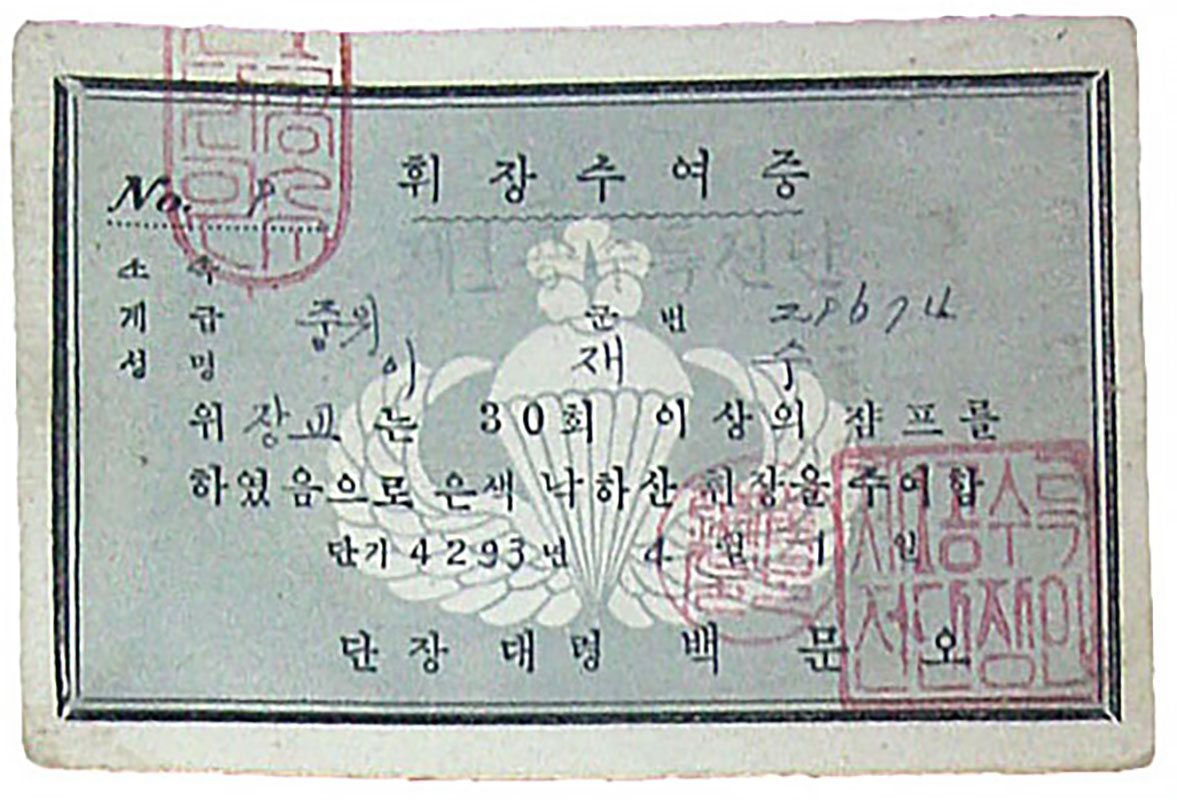 휘장수여증
No. 8
소속
계급 중위 군번
성명 이재수
위 장교는 30회 이상의 잠프를
하였음으로 은색 낙하산 휘장을 수여함
단기 4293년 4월 1일
단장 대령 백문오